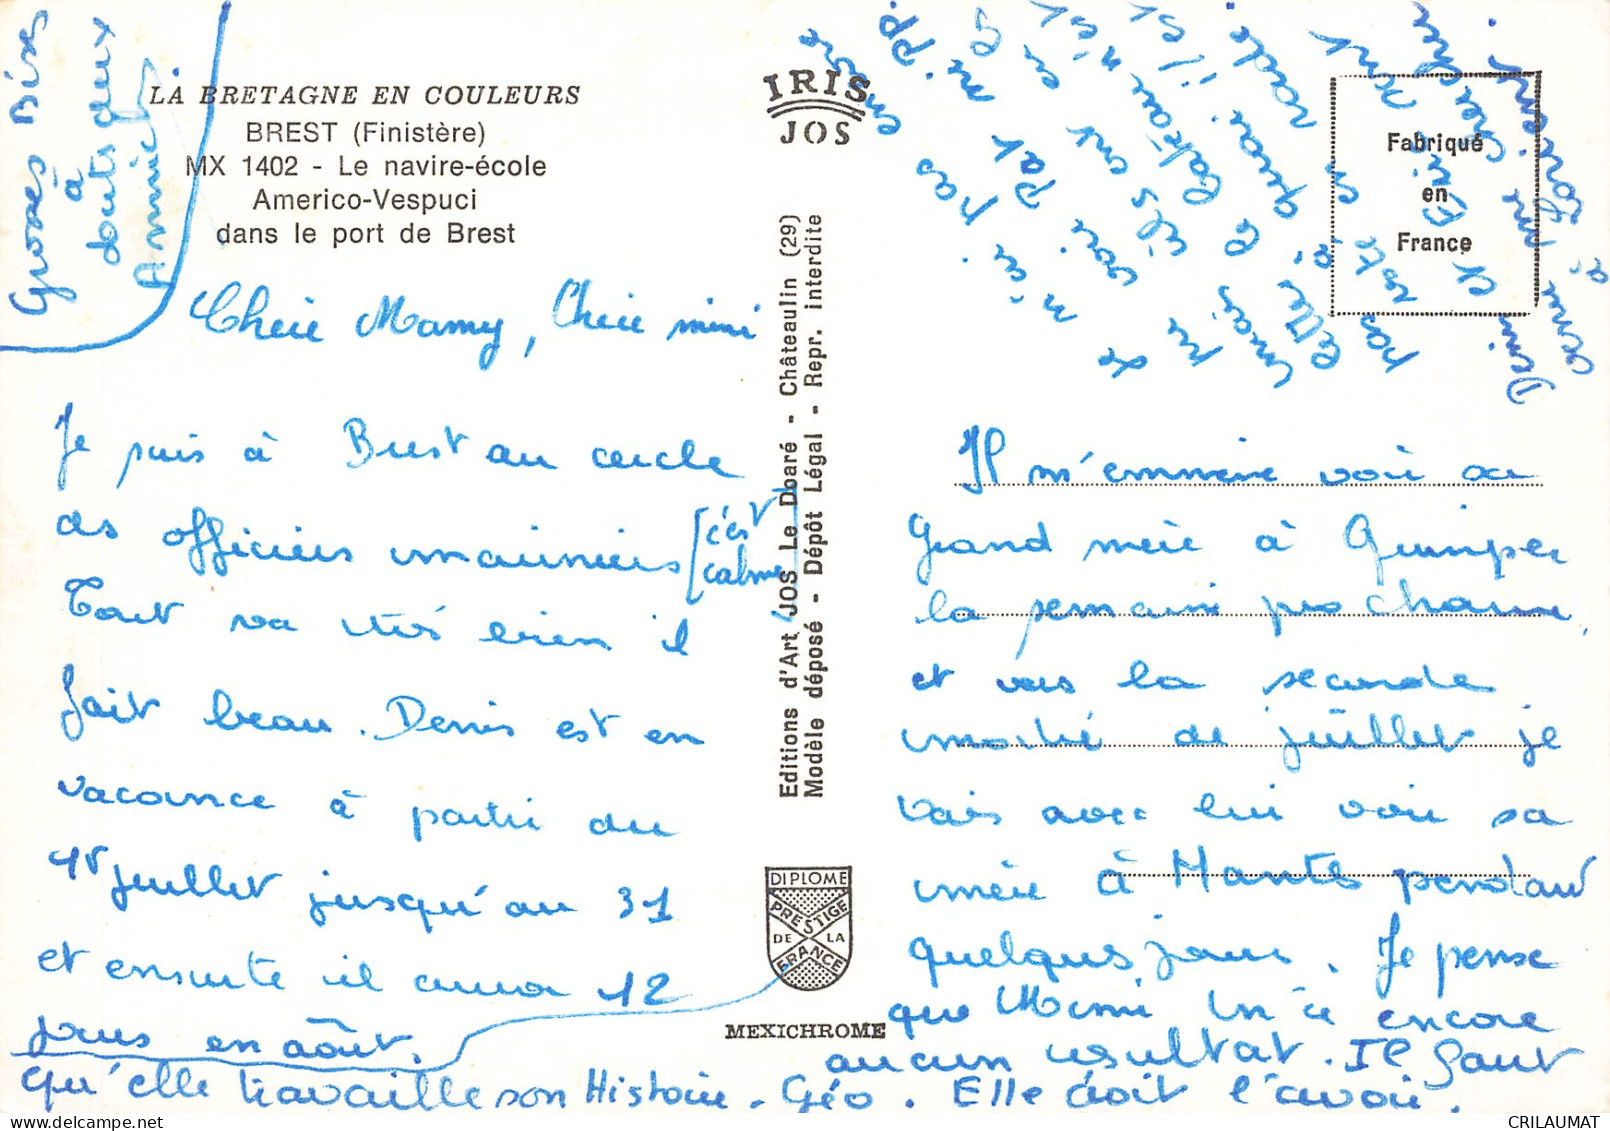 LA BRETAGNE EN COULEURS
BREST (Finistère)
MX 1402 - Le navire-école
Americo-Vespuci
dans le port de Brest
IRIS
JOS
Fabriqué
en
France
Editions d'Art JOS Le Doaré - Châteaulin (29)
Modèle déposé - Dépôt Légal - Repr. interdite
DIPLOME
PRESTIGE
DE LA
FRANCE
MEXICHROME
Chère Mamy, Chère mimi
Je suis à Brest au cercle
des officiers mariniers (c'est
calme
Tout va très bien il
fait beau. Denis est en
vacance à partir du
1er juillet jusqu'au 31
et ensuite il aura 12
jours en août.
Il m'emmène voir sa
Grand mère à Quimper
la semaine prochaine,
et vers la seconde
moitié de juillet je
vais avec lui voir sa
mère à Nantes pendant
quelques jours. Je pense
que Mimi n'a encore
aucun résultat. Il faut
qu'elle travaille son Histoire - Géo. Elle doit l'avoir.
encore
pas
m'a
de voir Pat
mais le bateau n'est
pas
Denis et
Grosses Bises
à
toutes deux
Annick
CRILAUMAT